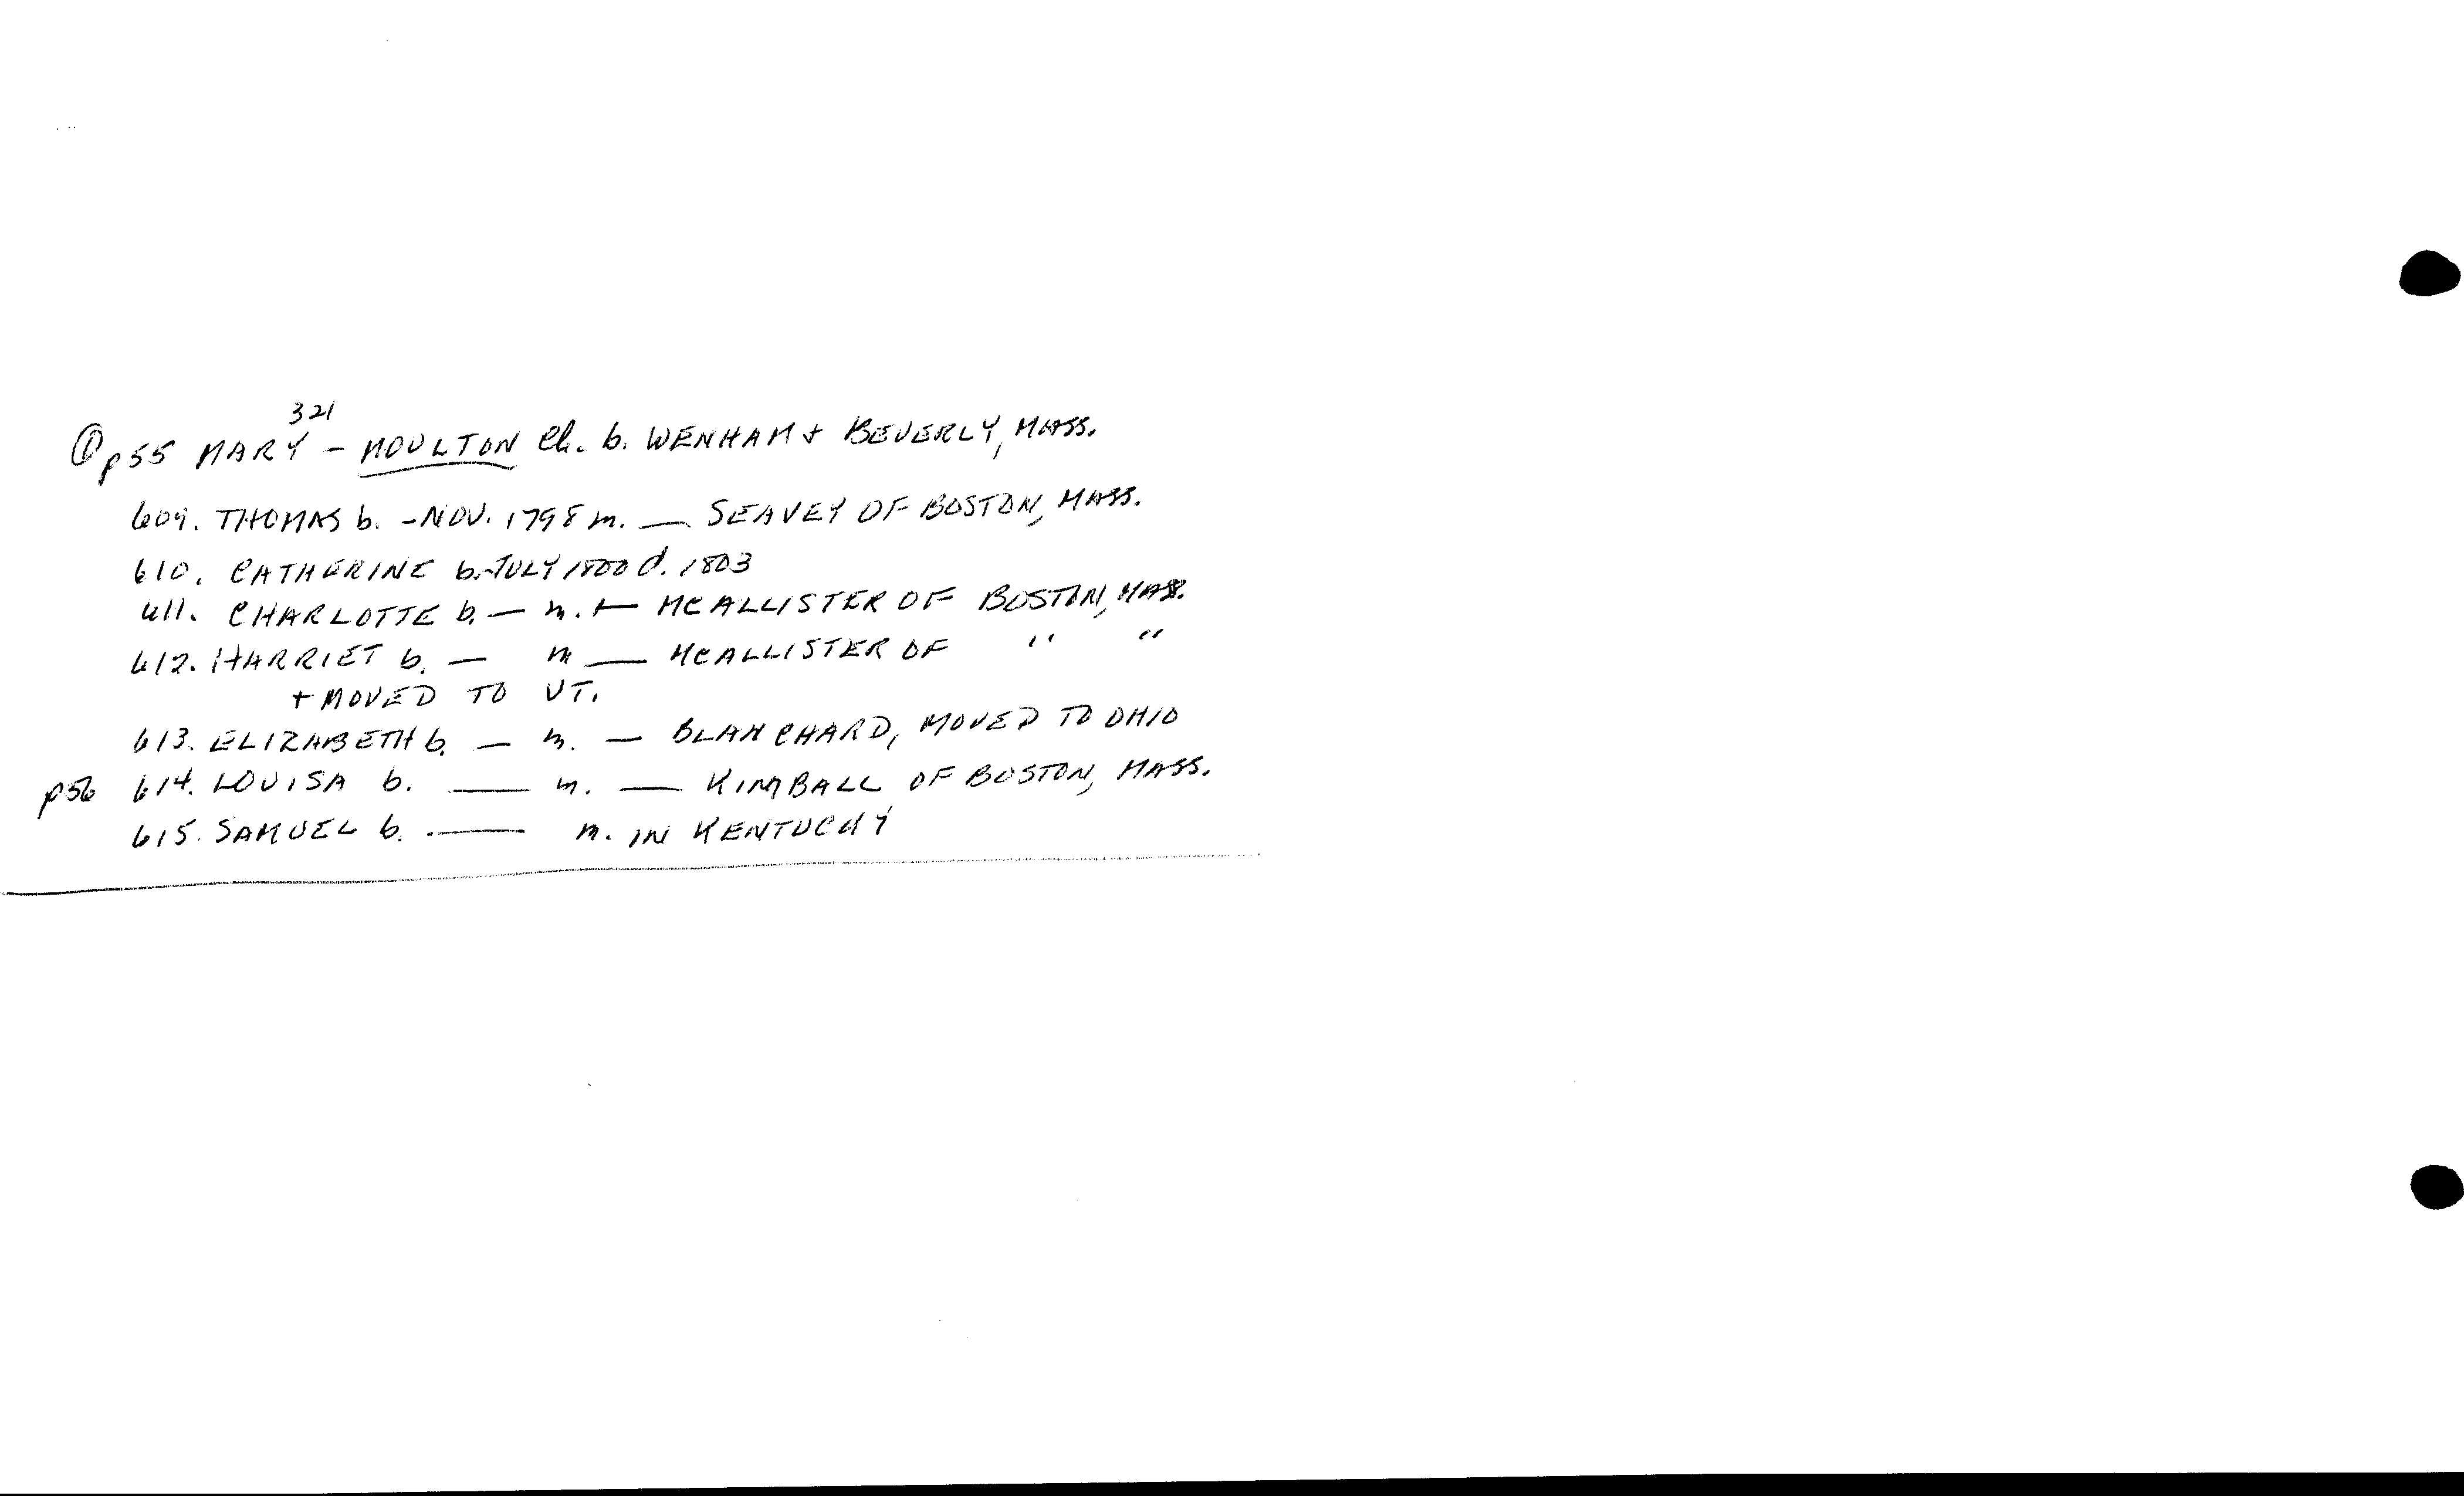 321
① p55 MARY - MOULTON Ch. b. WENHAM + BEVERLY, MASS.
609. THOMAS b. - NOV. 1798 m. — SEAVEY OF BOSTON, MASS.
610. CATHERINE b. - JULY 1800 d. 1803
611. CHARLOTTE b. — m. — MCALLISTER OF BOSTON, MASS.
612. HARRIET b. — m — MCALLISTER OF " "
+ MOVED TO VT.
613. ELIZABETH b. — m. — BLANCHARD, MOVED TO OHIO
p56 614. LOUISA b. — m. — KIMBALL OF BOSTON, MASS.
615. SAMUEL b. — m. IN KENTUCKY